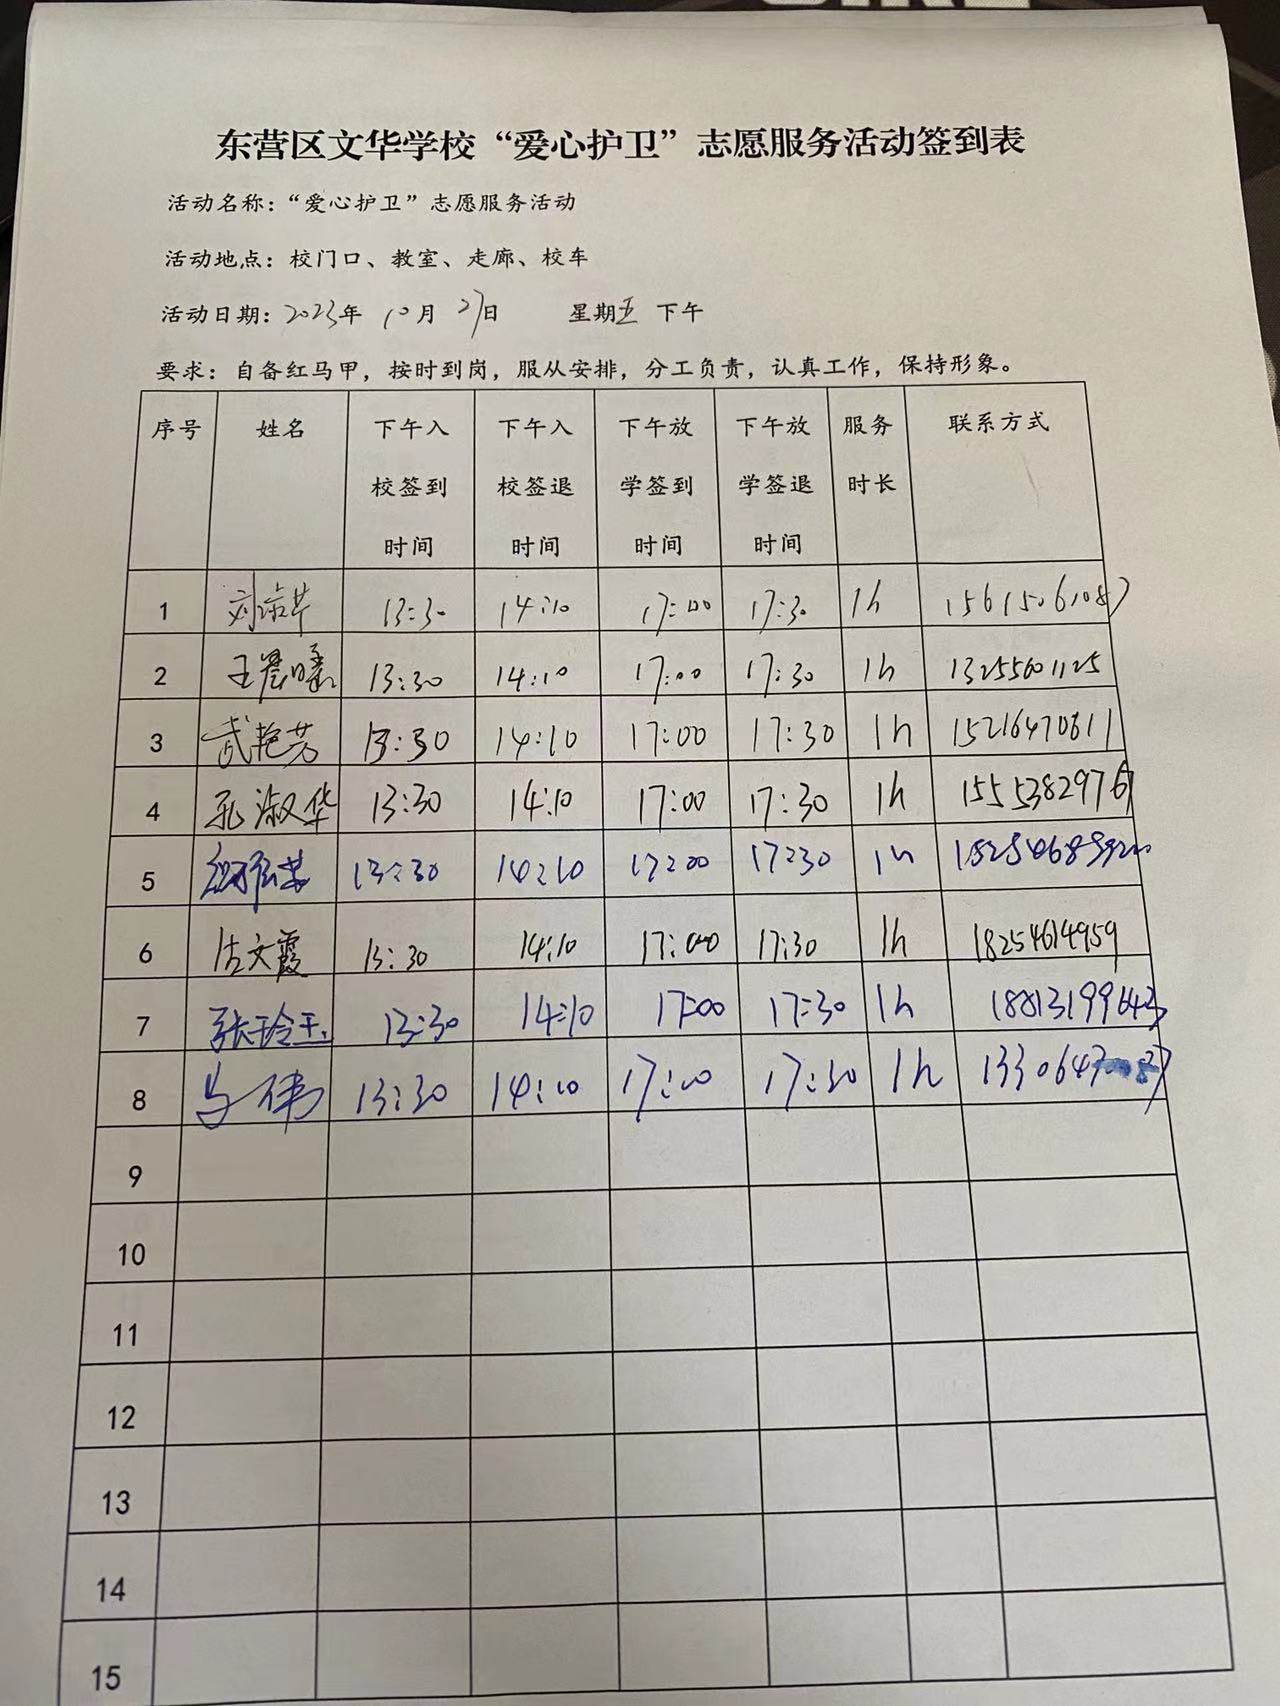 东营区文华学校“爱心护卫”志愿服务活动签到表
活动名称：“爱心护卫”志愿服务活动
活动地点：校门口、教室、走廊、校车
活动日期：2023年 10月 27日 星期五 下午
要求：自备红马甲，按时到岗，服从安排，分工负责，认真工作，保持形象。
序号 姓名 下午入校签到时间 下午入校签退时间 下午放学签到时间 下午放学签退时间 服务时长 联系方式
1 13:30 14:10 17:00 17:30 1h 15615061087
2 王晨曦 13:30 14:10 17:00 17:30 1h 13255601125
3 武艳芳 13:30 14:10 17:00 17:30 1h 15216470811
4 孔淑华 13:30 14:10 17:00 17:30 1h 15553829767
5 13:30 14:10 17:00 17:30 1h
6 古文霞 13:30 14:10 17:00 17:30 1h 18254614959
7 张玲玉 13:30 14:10 17:00 17:30 1h 18813199643
8 马伟 13:30 14:10 17:00 17:30 1h
9
10
11
12
13
14
15